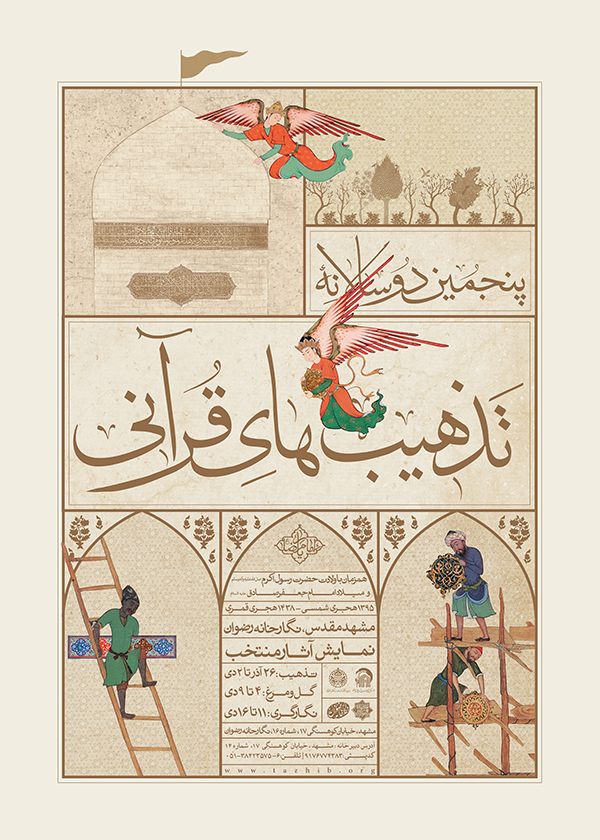 پنجمین دوسالانه
تذهیب‌های قرآنی
همزمان با ولادت حضرت رسول اکرم
و میلاد امام جعفر صادق
۱۳۹۵ هجری شمسی - ۱۴۳۸ هجری قمری
مشهد مقدس، نگارخانه رضوان
نمایش آثار منتخب
تذهیب: ۲۶ آذر تا ۲ دی
گل و مرغ: ۴ تا ۹ دی
نگارگری: ۱۱ تا ۱۶ دی
مشهد، خیابان کوهسنگی ۱۷، شماره ۱۶، نگارخانه رضوان
آدرس دبیرخانه: مشهد، خیابان کوهسنگی ۱۷، شماره ۱۴
کدپستی: ۹۱۷۶۷۷۴۳۸۳ | تلفن: ۶-۳۸۴۲۳۵۷۵-۰۵۱
www.tazhib.org